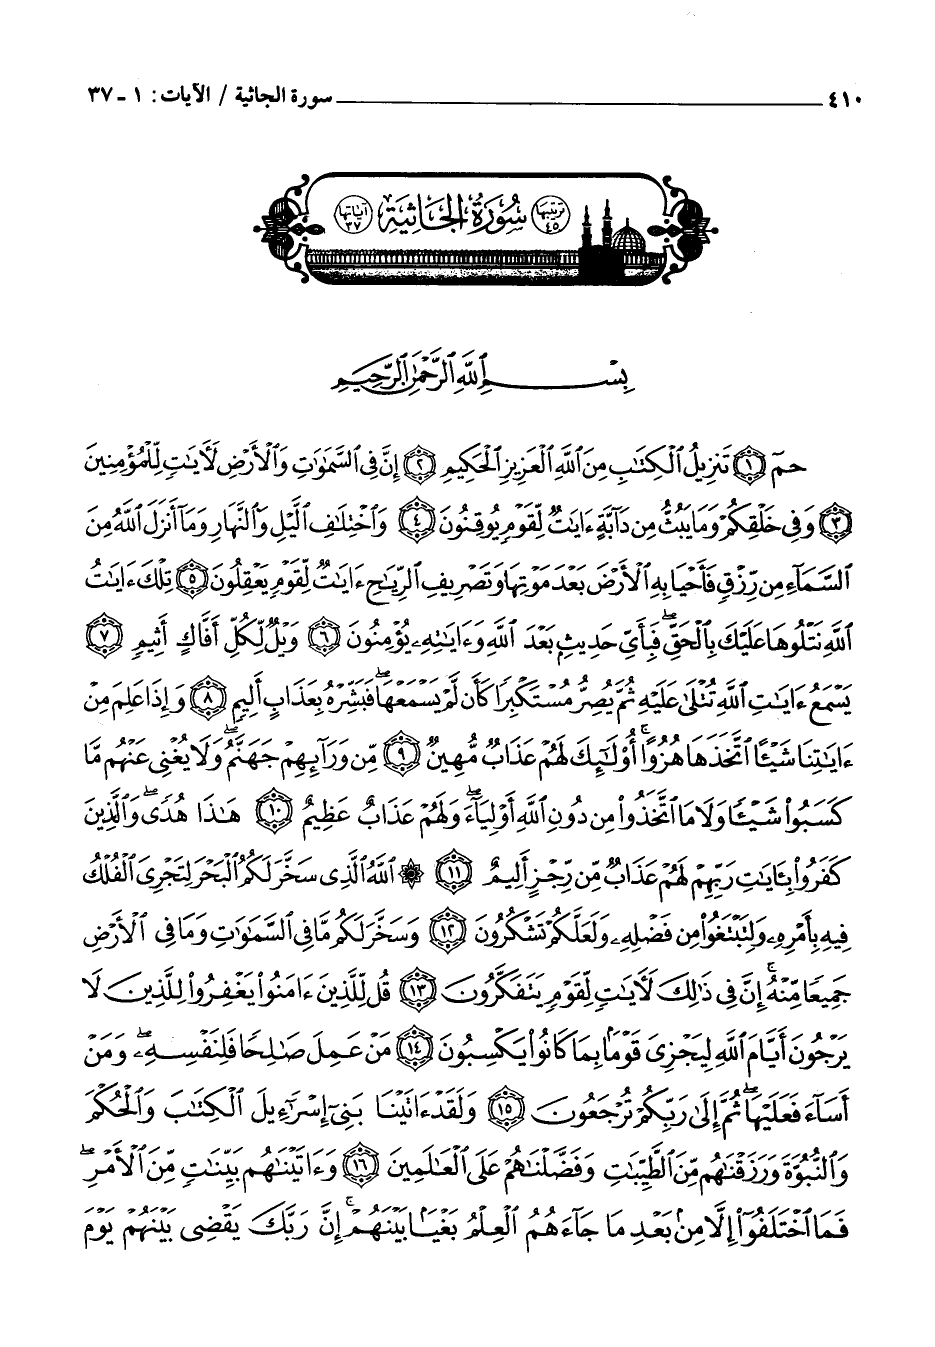 ٤١٠ سورة الجاثية / الآيات: ١ - ٣٧
ترتيبها ٤٥ سُورَةُ الجَاثِيَة آياتها ٣٧
بِسْمِ ٱللَّهِ ٱلرَّحْمَٰنِ ٱلرَّحِيمِ
حمٓ ١ تَنزِيلُ ٱلْكِتَٰبِ مِنَ ٱللَّهِ ٱلْعَزِيزِ ٱلْحَكِيمِ ٢ إِنَّ فِى ٱلسَّمَٰوَٰتِ وَٱلْأَرْضِ لَءَايَٰتٍ لِّلْمُؤْمِنِينَ
٣ وَفِى خَلْقِكُمْ وَمَا يَبُثُّ مِن دَآبَّةٍ ءَايَٰتٌ لِّقَوْمٍ يُوقِنُونَ ٤ وَٱخْتِلَٰفِ ٱلَّيْلِ وَٱلنَّهَارِ وَمَآ أَنزَلَ ٱللَّهُ مِنَ
ٱلسَّمَآءِ مِن رِّزْقٍ فَأَحْيَا بِهِ ٱلْأَرْضَ بَعْدَ مَوْتِهَا وَتَصْرِيفِ ٱلرِّيَٰحِ ءَايَٰتٌ لِّقَوْمٍ يَعْقِلُونَ ٥ تِلْكَ ءَايَٰتُ
ٱللَّهِ نَتْلُوهَا عَلَيْكَ بِٱلْحَقِّ ۖ فَبِأَىِّ حَدِيثٍۭ بَعْدَ ٱللَّهِ وَءَايَٰتِهِۦ يُؤْمِنُونَ ٦ وَيْلٌ لِّكُلِّ أَفَّاكٍ أَثِيمٍ ٧
يَسْمَعُ ءَايَٰتِ ٱللَّهِ تُتْلَىٰ عَلَيْهِ ثُمَّ يُصِرُّ مُسْتَكْبِرًا كَأَن لَّمْ يَسْمَعْهَا ۖ فَبَشِّرْهُ بِعَذَابٍ أَلِيمٍ ٨ وَإِذَا عَلِمَ مِنْ
ءَايَٰتِنَا شَيْـًٔا ٱتَّخَذَهَا هُزُوًا ۚ أُو۟لَٰٓئِكَ لَهُمْ عَذَابٌ مُّهِينٌ ٩ مِّن وَرَآئِهِمْ جَهَنَّمُ ۖ وَلَا يُغْنِى عَنْهُم مَّا
كَسَبُوا۟ شَيْـًٔا وَلَا مَا ٱتَّخَذُوا۟ مِن دُونِ ٱللَّهِ أَوْلِيَآءَ ۖ وَلَهُمْ عَذَابٌ عَظِيمٌ ١٠ هَٰذَا هُدًى ۖ وَٱلَّذِينَ
كَفَرُوا۟ بِـَٔايَٰتِ رَبِّهِمْ لَهُمْ عَذَابٌ مِّن رِّجْزٍ أَلِيمٌ ١١ ۞ ٱللَّهُ ٱلَّذِى سَخَّرَ لَكُمُ ٱلْبَحْرَ لِتَجْرِىَ ٱلْفُلْكُ
فِيهِ بِأَمْرِهِۦ وَلِتَبْتَغُوا۟ مِن فَضْلِهِۦ وَلَعَلَّكُمْ تَشْكُرُونَ ١٢ وَسَخَّرَ لَكُم مَّا فِى ٱلسَّمَٰوَٰتِ وَمَا فِى ٱلْأَرْضِ
جَمِيعًا مِّنْهُ ۚ إِنَّ فِى ذَٰلِكَ لَءَايَٰتٍ لِّقَوْمٍ يَتَفَكَّرُونَ ١٣ قُل لِّلَّذِينَ ءَامَنُوا۟ يَغْفِرُوا۟ لِلَّذِينَ لَا
يَرْجُونَ أَيَّامَ ٱللَّهِ لِيَجْزِىَ قَوْمًۢا بِمَا كَانُوا۟ يَكْسِبُونَ ١٤ مَنْ عَمِلَ صَٰلِحًا فَلِنَفْسِهِۦ ۖ وَمَنْ
أَسَآءَ فَعَلَيْهَا ۖ ثُمَّ إِلَىٰ رَبِّكُمْ تُرْجَعُونَ ١٥ وَلَقَدْ ءَاتَيْنَا بَنِىٓ إِسْرَٰٓءِيلَ ٱلْكِتَٰبَ وَٱلْحُكْمَ
وَٱلنُّبُوَّةَ وَرَزَقْنَٰهُم مِّنَ ٱلطَّيِّبَٰتِ وَفَضَّلْنَٰهُمْ عَلَى ٱلْعَٰلَمِينَ ١٦ وَءَاتَيْنَٰهُم بَيِّنَٰتٍ مِّنَ ٱلْأَمْرِ ۖ
فَمَا ٱخْتَلَفُوٓا۟ إِلَّا مِنۢ بَعْدِ مَا جَآءَهُمُ ٱلْعِلْمُ بَغْيًۢا بَيْنَهُمْ ۚ إِنَّ رَبَّكَ يَقْضِى بَيْنَهُمْ يَوْمَ